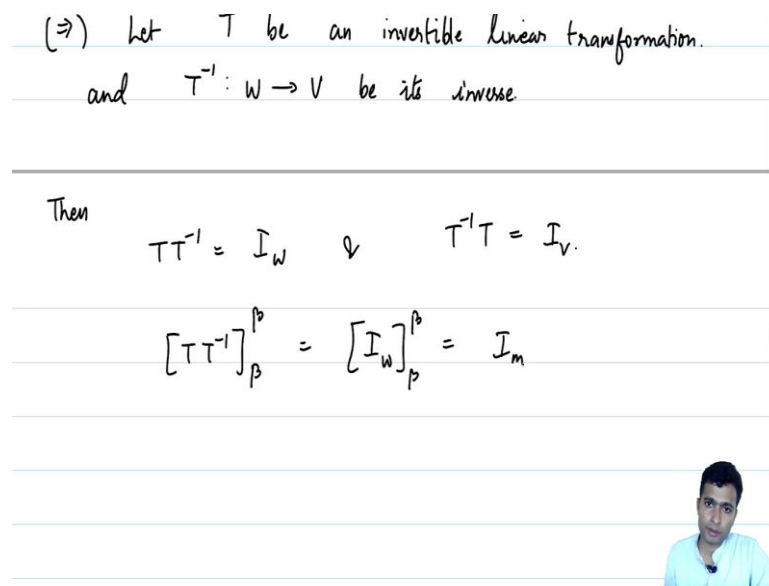 (⇒) Let T be an invertible linear transformation.
and T⁻¹ : W → V be its inverse.
Then
TT⁻¹ = I_W & T⁻¹T = I_V.
[TT⁻¹]_β^β = [I_W]_β^β = I_m